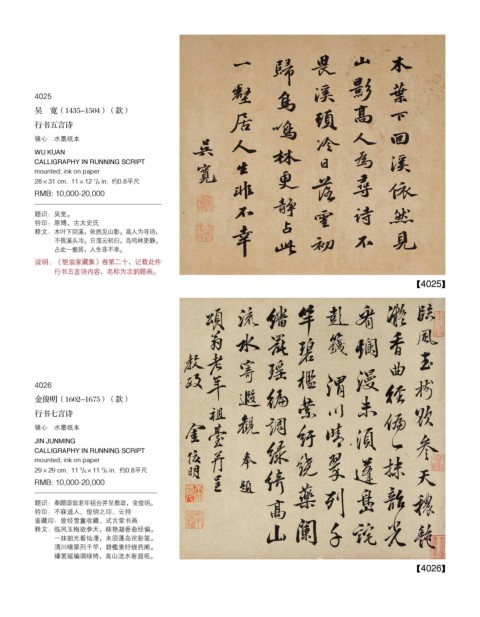 4025
吴　宽（1435–1504）（款）
行书五言诗
镜心　水墨纸本
WU KUAN
CALLIGRAPHY IN RUNNING SCRIPT
mounted; ink on paper
28×31 cm. 11×12 1/4 in. 约0.8平尺
RMB: 10,000-20,000
题识：吴宽。
钤印：原博、古太史氏
释文：木叶下回溪，依然见山影。高人为寻诗，
不畏溪头冷。日落云初归，鸟鸣林更静。
占此一壑居，人生非不幸。
说明：《匏翁家藏集》卷第二十，记载此件
行书五言诗内容，名称为次韵题画。
木葉下回溪依然見
山影高人為尋诗不
畏溪頭冷日落雲初
歸鳥鳴林更静占此
一壑居人生非不幸
吴寬
【4025】
4026
金俊明（1602–1675）（款）
行书七言诗
镜心　水墨纸本
JIN JUNMING
CALLIGRAPHY IN RUNNING SCRIPT
mounted; ink on paper
29×29 cm. 11 3/8×11 3/8 in. 约0.8平尺
RMB: 10,000-20,000
题识：奉题颂翁老年祖台并呈教政，金俊明。
钤印：不寐道人、俊明之印、云持
鉴藏印：曾经雪董收藏、式古堂书画
释文：临风玉梅欲参天，秾艳凝香曲经偏。
一抹韶光看烂漫，未须蓬岛诧彭篯。
渭川晴翠列千竿，碧槛萦纡绕药阑。
繙罢瑶编调绿绮，高山流水寄遐观。
臨風玉梅欲參天穠艶
凝香曲經偏一抹韶光
看爛漫未須蓬島詫
彭籛渭川晴翠列千
竿碧檻縈紆繞藥闌
繙罷瑶编調緑綺高山
流水寄遐觀奉題
頌翁老年祖臺并呈
教政金俊明
【4026】